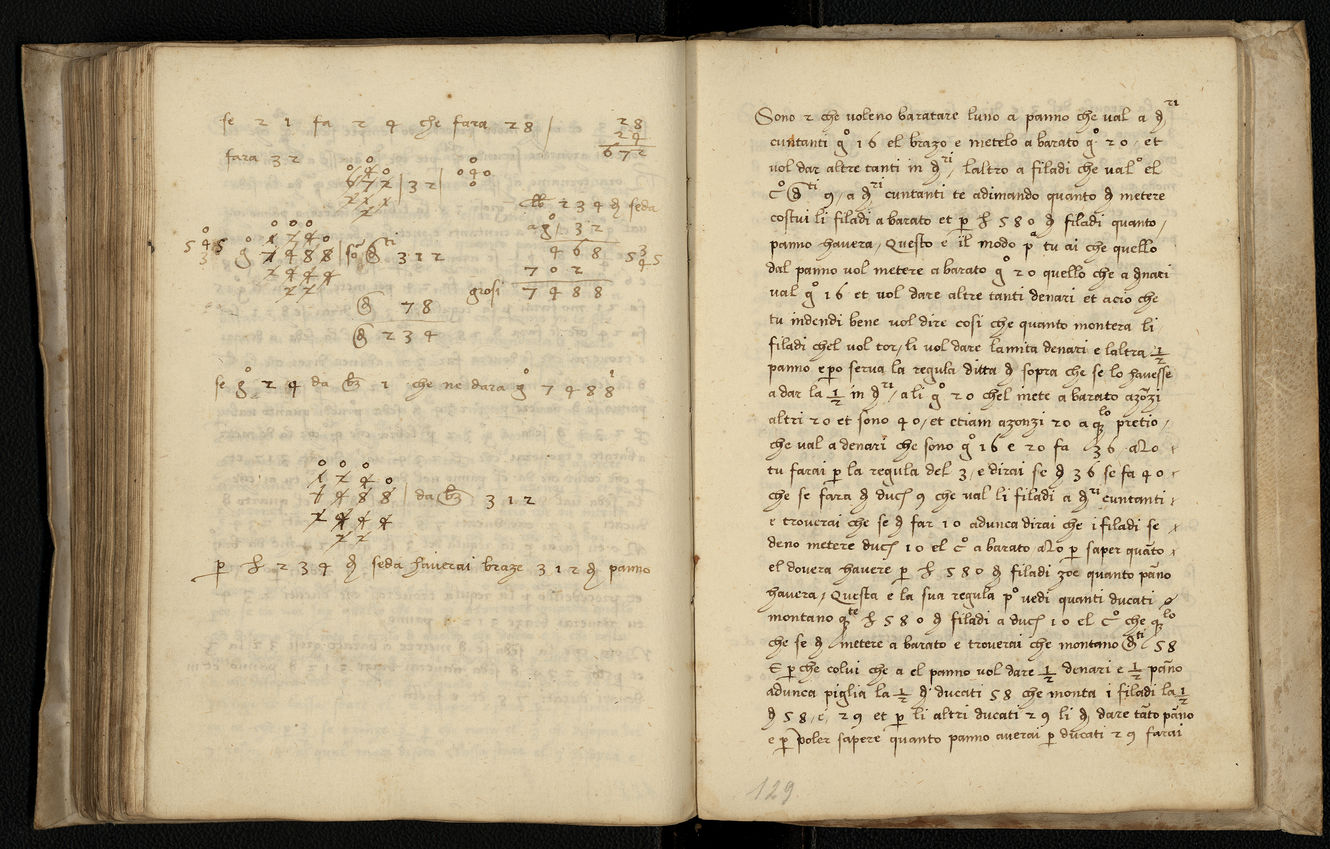 se 2 1 fa 2 4 che fara 28 /
28
24
672
fara 32
0
0 4 0
672 | 32 | 0 4 0
0
lb 234 d seda
a g 32
468
702
grosi 7488
5 4 5
3
0 0 0
1 7 4 0
g 7488 | so d ti 312
7 4 4 4
5 3 5
4
d 78
d 234
se g° 24 da bz 1 che ne dara g° 7488
0 0 0
1 2 4 0
7488 | da bz 312
7 4 4 4
p lb 234 d seda haverai braze 312 d panno
Sono 2 che voleno baratare luno a panno che val a d ri
cuntanti g° 16 el brazo e metelo a barato g° 20 / et
vol dar altre tanti in d ri / laltro a filadi che val° el
c° d ti 9 / a d ri cuntanti te adimando quanto d metere
costui li filadi a barato et p lb 580 d filadi quanto /
panno havera / Questo e il modo p° tu ai che quello
dal panno vol metere a barato g° 20 quello che a dnari
val g° 16 et vol dare altre tanti denari et acio che
tu indendi bene vol dire cosi che quanto montera li
filadi chel vol tor / li vol dare lamita denari e laltra 1/2
panno e po serva la regula ditta d sopra che se lo havesse
a dar la 1/2 in d ri / a li g° 20 chel mete a barato azõzi
altri 20 et sono 40 / et etiam azonzi 20 a q lo pretio /
che val a denari che sono g° 16 e 20 fa 36 alo
tu farai p la regula del 3 / e dirai se d 36 se fa 40
che se fara d duc 9 che val li filadi a d ri cuntanti
e troverai che se d far 10 adunca dirai che i filadi se
deno metere duc 10 el c° a barato alo p saper quãto
el dovera havere p lb 580 d filadi zoe quanto pãno
havera / Questa e la sua regula p° vedi quanti ducati
montano q te lb 580 d filadi a duc 10 el c° che q lo
che se d metere a barato e troverai che montano d ti 58
E p che colui che a el panno vol dare 1/2 denari e 1/2 pãno
adunca piglia la 1/2 d ducati 58 che monta i filadi la 1/2
d 58 / e / 29 et p li altri ducati 29 li d dare tãto pãno
e p poler sapere quanto panno averai p ducati 29 farai
129